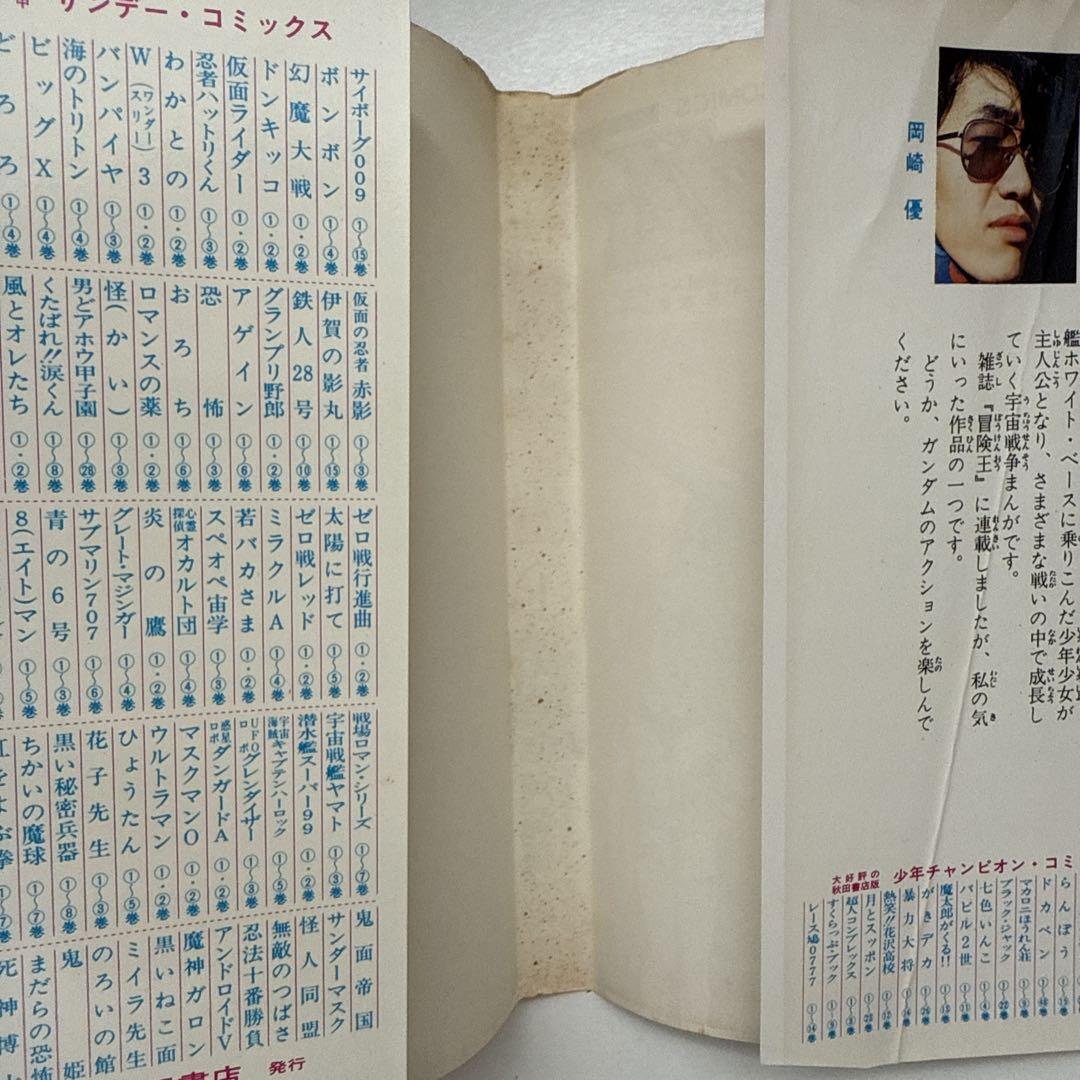 岡崎優
艦ホワイト・ベースに乗りこんだ少年少女が
主人公となり、さまざまな戦いの中で成長し
ていく宇宙戦争まんがです。
雑誌『冒険王』に連載しましたが、私の気
にいった作品の一つです。
どうか、ガンダムのアクションを楽しんで
ください。
大好評の
秋田書店版
少年チャンピオン・コミ
らんぽう
ドカベン
マカロニほうれん荘
ブラック・ジャック
七色いんこ ①〜④巻
バビル2世
魔太郎がくる!!
がきデカ
暴力大将
熱笑!!花沢高校
月とスッポン
超人コンプレックス
すくらっぷ・ブック
レース鳩0777
サンデー・コミックス
サイボーグ009 ①〜⑮巻
ボンボン ①〜④巻
幻魔大戦 ①・②巻
ドンキッコ ①・②巻
仮面ライダー ①・②巻
忍者ハットリくん ①〜③巻
わかとの ①・②巻
W(ワンダー)3(スリー) ①・②巻
バンパイヤ ①〜③巻
海のトリトン ①〜④巻
ビッグX ①〜④巻
どろろ ①〜④巻
仮面の忍者 赤影 ①〜③巻
伊賀の影丸 ①〜⑮巻
鉄人28号 ①〜⑩巻
グランプリ野郎 ①・②巻
アゲイン ①〜⑥巻
恐怖 ①〜③巻
おろち ①〜⑥巻
ロマンスの薬 ①・②巻
怪(かい) ①〜③巻
男どアホウ甲子園 ①〜㉘巻
くたばれ!!涙くん ①〜⑧巻
風とオレたち ①・②巻
ゼロ戦行進曲 ①・②巻
太陽に打て ①〜⑤巻
ゼロ戦レッド ①・②巻
ミラクルA ①〜④巻
若バカさま ①・②巻
スペオペ宙学 ①〜③巻
心霊探偵オカルト団 ①〜④巻
炎の鷹 ①・②巻
グレート・マジンガー ①〜④巻
サブマリン707 ①〜⑥巻
青の6号 ①〜③巻
8(エイト)マン ①〜⑤巻
戦場ロマン・シリーズ ①〜⑦巻
宇宙戦艦ヤマト ①〜③巻
潜水艦スーパー99 ①・②巻
宇宙海賊キャプテンハーロック ①〜⑤巻
UFOロボグレンダイザー ①〜③巻
惑星ロボダンガードA ①・②巻
マスクマンO ①・②巻
ウルトラマン ①・②巻
ひょうたん ①〜⑤巻
花子先生 ①〜③巻
黒い秘密兵器 ①〜⑧巻
ちかいの魔球 ①〜⑦巻
虹をよぶ拳 ①〜⑦巻
鬼面帝国
サンダーマスク
怪人同盟
無敵のつばさ
忍法十番勝負
アンドロイドV
魔神ガロン
黒いねこ面
ミイラ先生
のろいの館
鬼姫
まだらの恐怖
死神博士
書店 発行